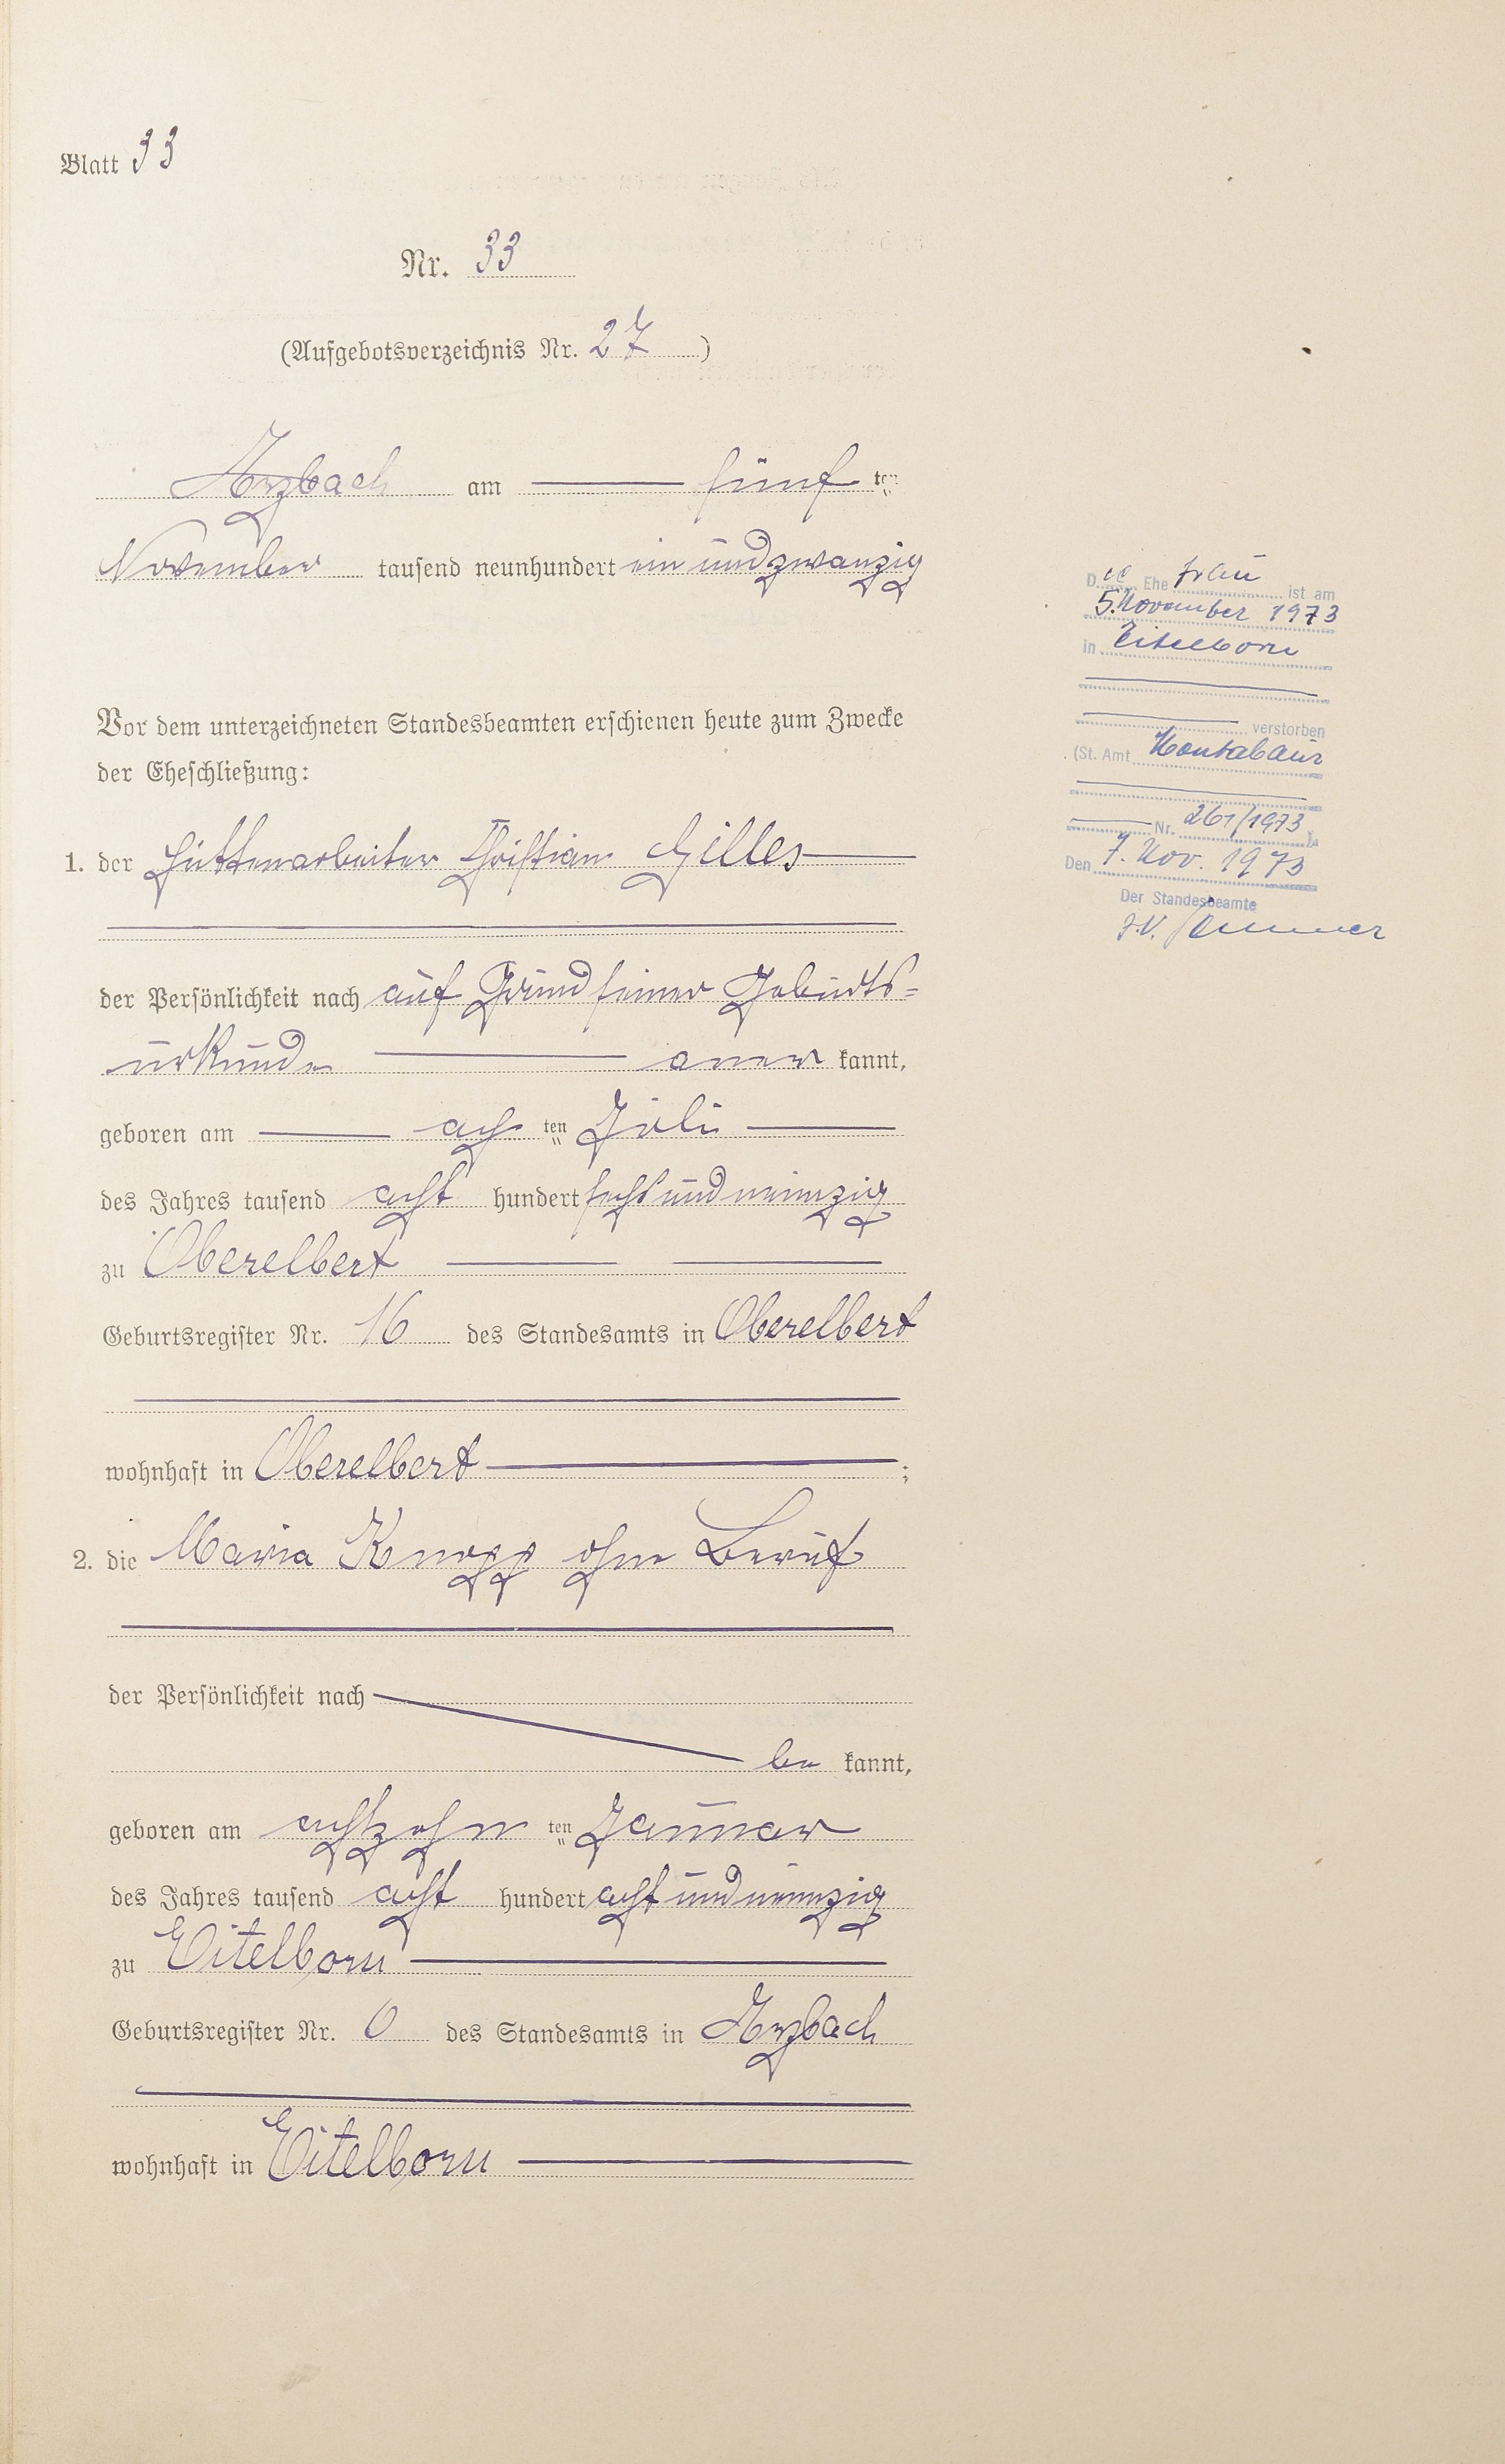 Blatt 33
Nr. 33
(Aufgebotsverzeichnis Nr. 27)
Arzbach am fünf ten
November tausend neunhundert ein und zwanzig
Vor dem unterzeichneten Standesbeamten erschienen heute zum Zwecke
der Eheschließung:
1. der Hüttenarbeiter Christian Gilles
der Persönlichkeit nach auf Grund seiner Geburts=
urkunde aner kannt,
geboren am ach ten Juli
des Jahres tausend acht hundert sechs und neunzig
zu Oberelbert
Geburtsregister Nr. 16 des Standesamts in Oberelbert
wohnhaft in Oberelbert ;
2. die Maria Knopp ohne Beruf
der Persönlichkeit nach
be kannt,
geboren am achtzehn ten Januar
des Jahres tausend acht hundert acht und neunzig
zu Eitelborn
Geburtsregister Nr. 6 des Standesamts in Arzbach
wohnhaft in Eitelborn
D ie Ehe frau ist am
5. November 1973
in Eitelborn
verstorben
(St. Amt Montabaur
Nr. 261/1973)
Den 7. Nov. 1973
Der Standesbeamte
J.V.